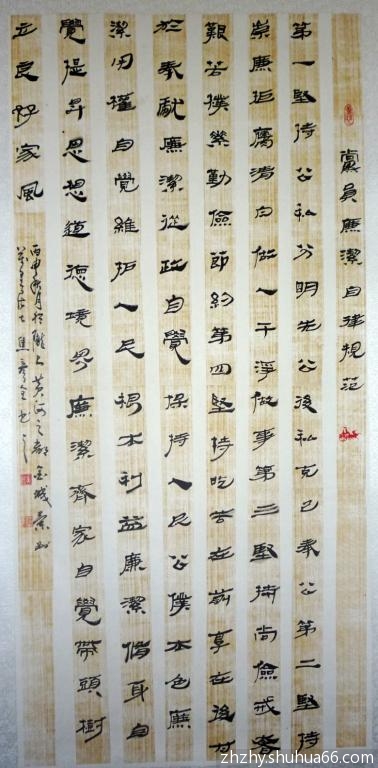 黨員廉潔自律規范
第一堅持公私分明先公後私克己奉公第二堅持
崇廉拒腐清白做人干淨做事第三堅持尚儉戒奢
艱苦樸素勤儉節約第四堅持吃苦在前享在後甘
於奉獻廉潔從政自覺保持人民公僕本色廉
潔用權自覺維护人民根本利益廉潔修身自
覺提昇思想道德境界廉潔齊家自覺帶頭樹
立良好家風
丙申秋月於隴上黃河之都金城蘭州
居士焦
zhzhy.shuhua66.com